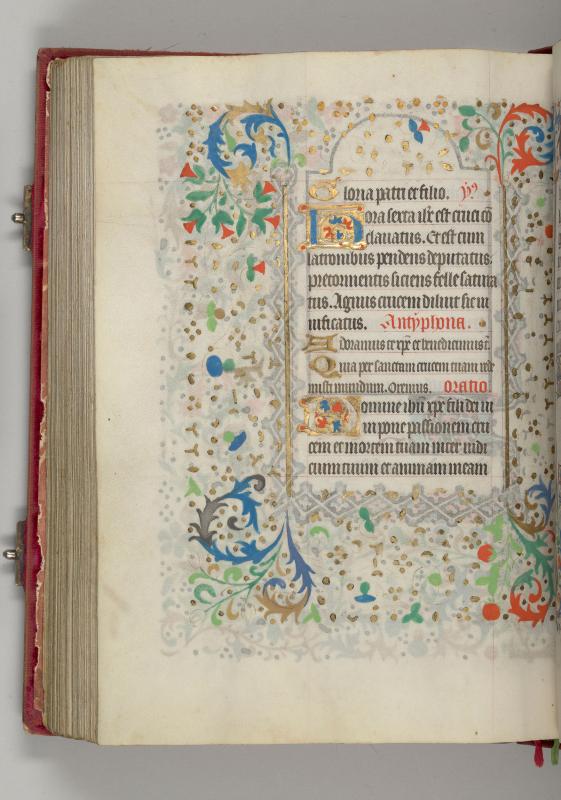 Gloria patri et filio. ỹ9
Hora sexta ihc̄ est cruci cō
clavatus. Et est cum
latronibus pendens deputatus.
pre tormentis sitiens felle satura
tus. Agnus crimen diluit sic lu
nificatus. Antyphona.
Adoramus te xp̄e et benedicimus t̄.
Quia per sanctam crucem tuam rede
misti mundum. Oremus. oratio.
Domine ihū xp̄e fili dei vi
vi pone passionem cru
cem et mortem tuam inter iudi
cium tuum et animam meam